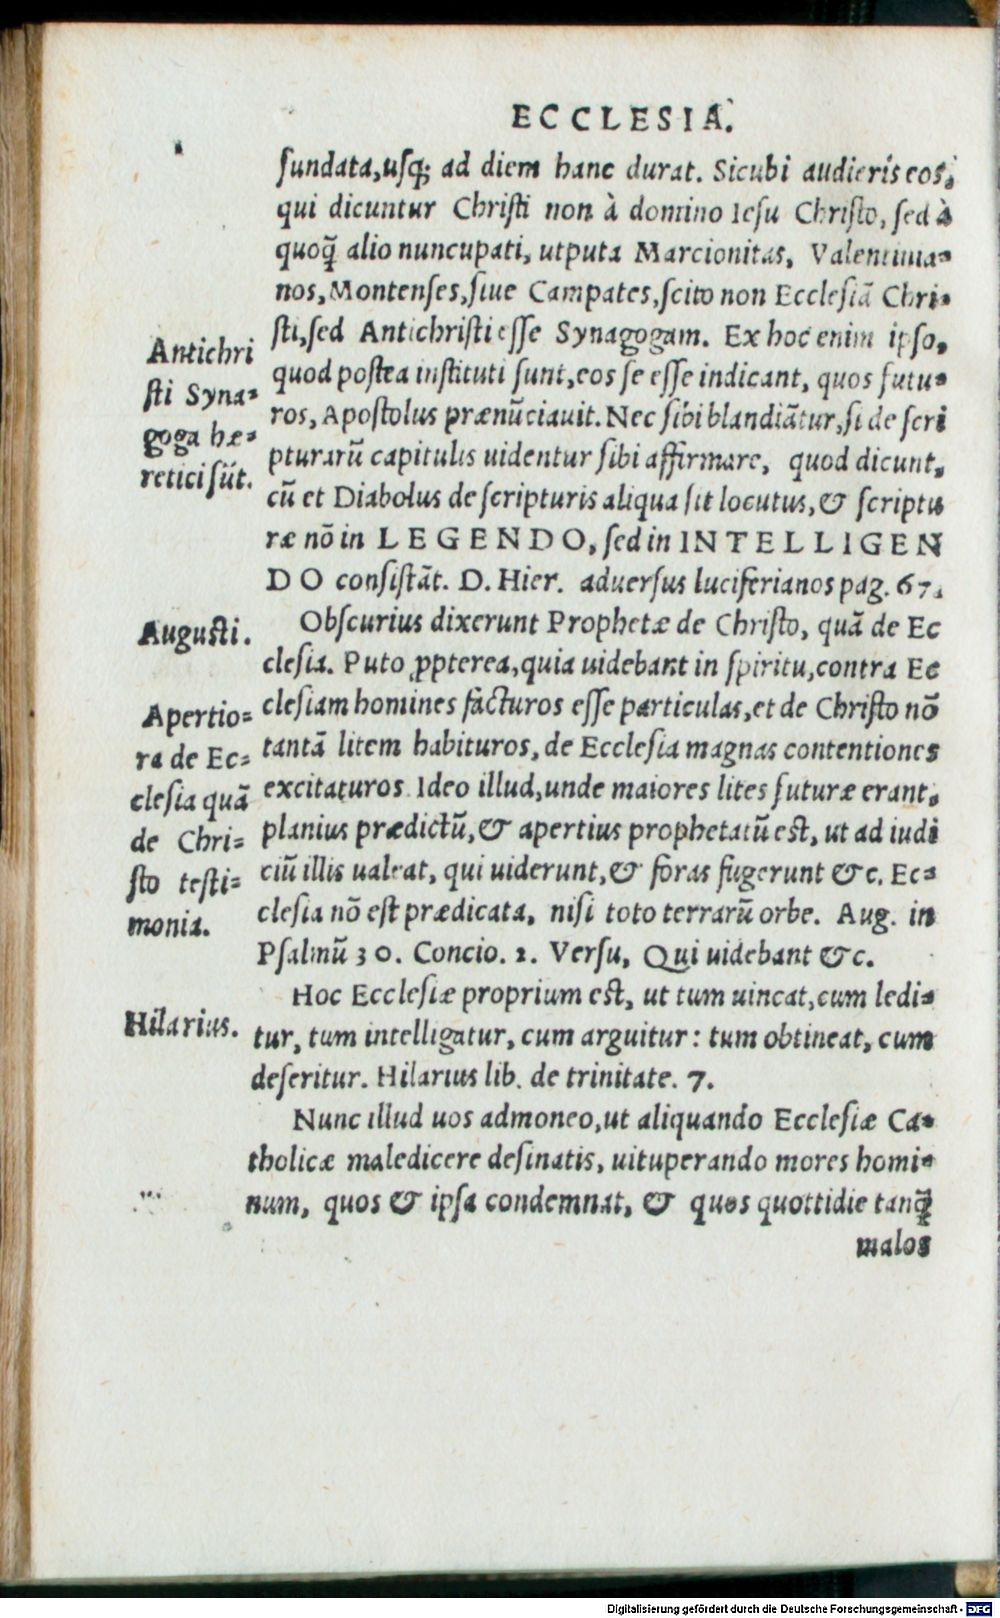 ECCLESIA.
fundata,usq; ad diem hanc durat. Sicubi audieris eos,
qui dicuntur Christi non à domino Iesu Christo, sed à
quoq̃ alio nuncupati, utputa Marcionitas, Valentinia-
nos, Montenses, siue Campates, scito non Ecclesiã Chri-
sti, sed Antichristi esse Synagogam. Ex hoc enim ipso,
quod postea instituti sunt, eos se esse indicant, quos futu-
ros, Apostolus prænũciauit. Nec sibi blandiãtur, si de scri
pturarũ capitulis uidentur sibi affirmare, quod dicunt,
cũ et Diabolus de scripturis aliqua sit locutus, & scriptu
ræ nõ in LEGENDO, sed in INTELLIGEN
DO consistãt. D. Hier. aduersus luciferianos pag. 67.
Obscurius dixerunt Prophetæ de Christo, quã de Ec
clesia. Puto ꝓpterea, quia uidebant in spiritu, contra Ec
clesiam homines facturos esse particulas, et de Christo nõ
tantã litem habituros, de Ecclesia magnas contentiones
excitaturos. Ideo illud, unde maiores lites futuræ erant,
planius prædictũ, & apertius prophetatũ est, ut ad iudi
ciũ illis ualeat, qui uiderunt, & foras fugerunt &c. Ec-
clesia nõ est prædicata, nisi toto terrarũ orbe. Aug. in
Psalmũ 30. Concio. 2. Versu, Qui uidebant &c.
Hoc Ecclesiæ proprium est, ut tum uincat, cum ledi-
tur, tum intelligatur, cum arguitur: tum obtineat, cum
deseritur. Hilarius lib. de trinitate. 7.
Nunc illud uos admoneo, ut aliquando Ecclesiæ Ca-
tholicæ maledicere desinatis, uituperando mores homi-
num, quos & ipsa condemnat, & quos quottidie tanq̃
malos
Antichri
sti Syna-
goga hæ-
retici sũt.
Augusti.
Apertio-
ra de Ec-
clesia quã
de Chri-
sto testi-
monia.
Hilarius.
Digitalisierung gefördert durch die Deutsche Forschungsgemeinschaft - DFG